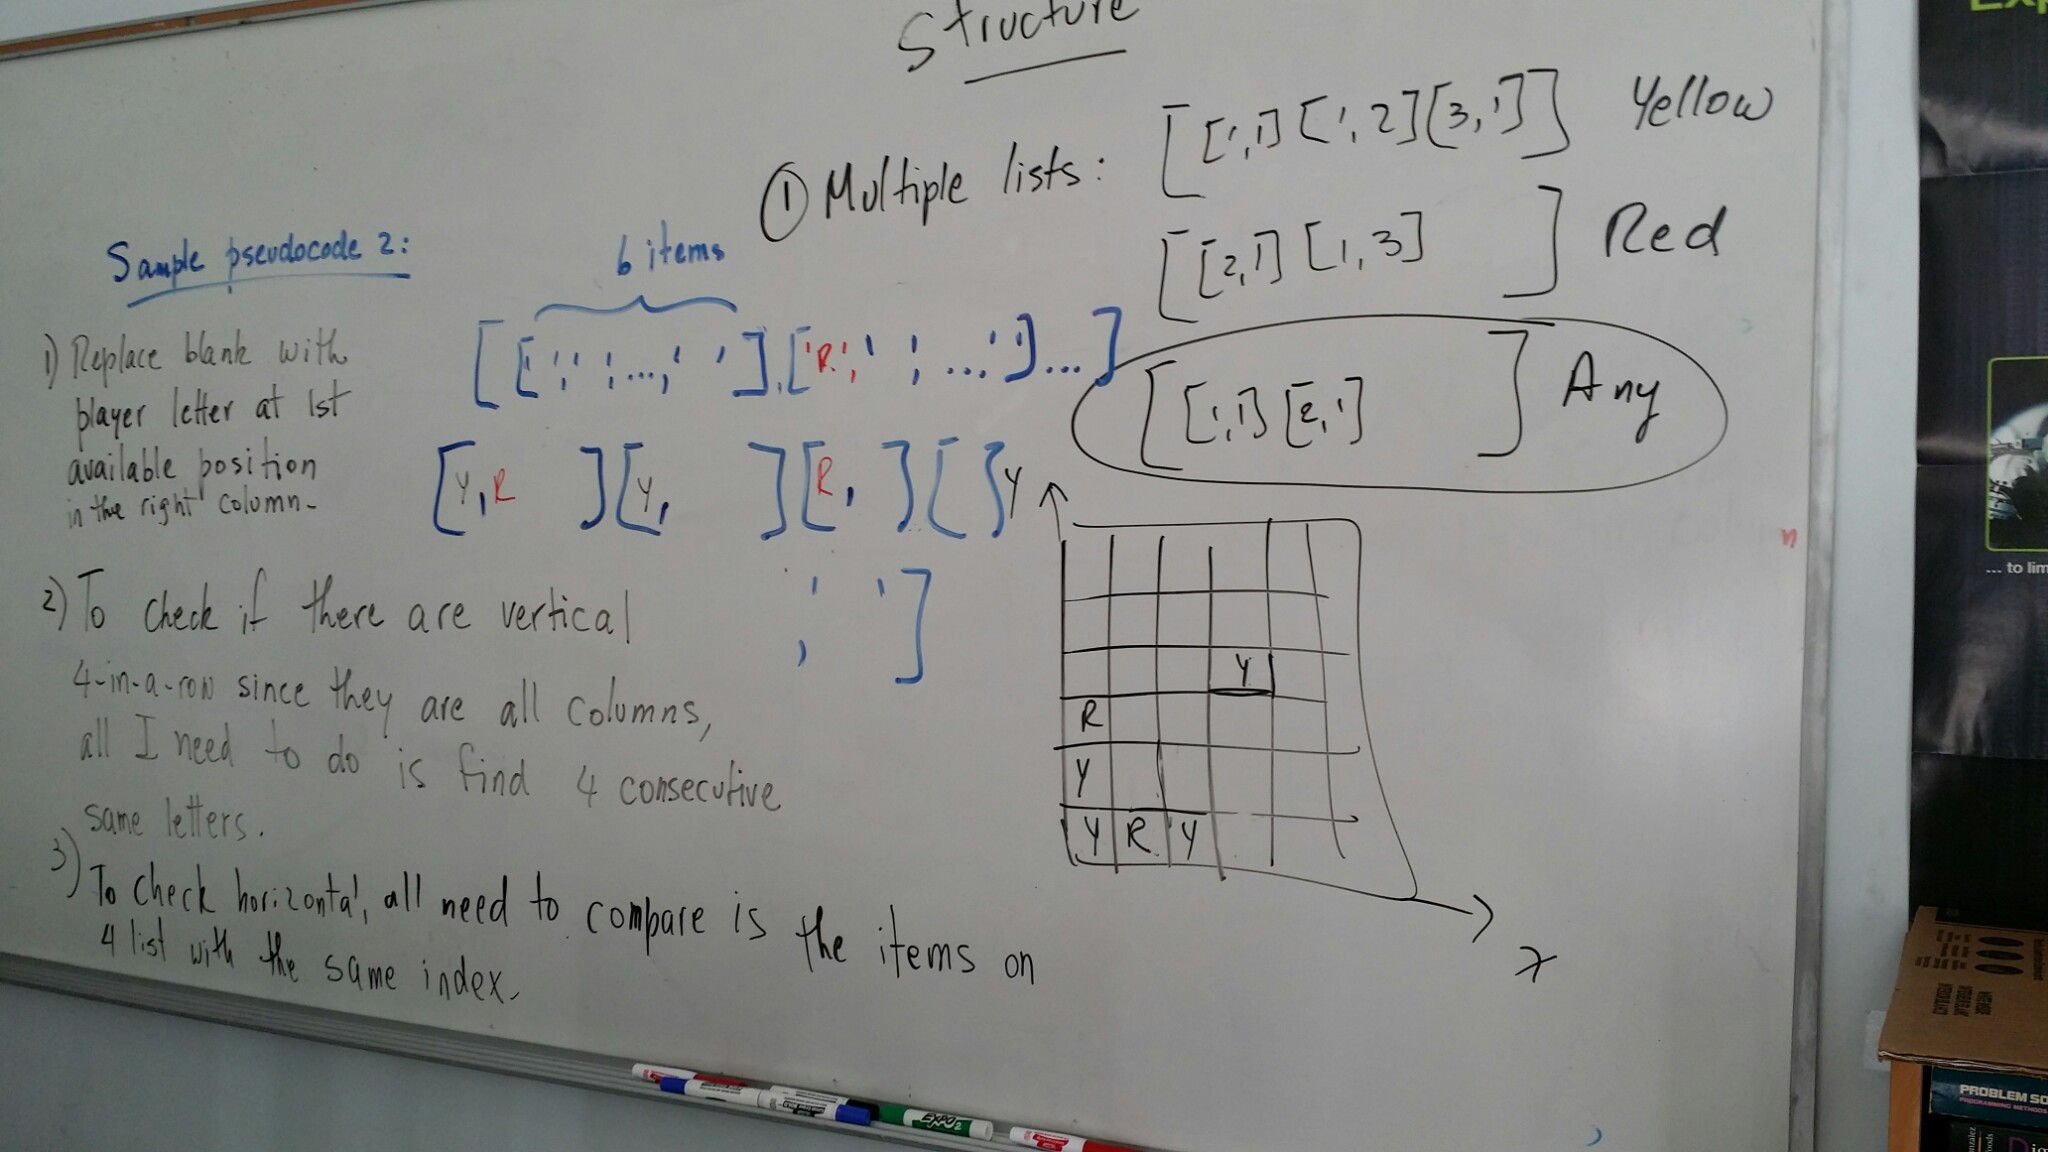 Structure
① Multiple lists:
[[1,1] [1,2] [3,1]] Yellow
[[2,1] [1,3] ] Red
[[1,1] [2,1] ] Any
Sample pseudocode 2:
6 items
[[' ',' ',...,' '],['R',' ',...' ']...]
[Y,R ][Y, ][R, ][ ]
' , ' ]
1) Replace blank with
player letter at 1st
available position
in the right column.
2) To check if there are vertical
4-in-a-row since they are all columns,
all I need to do is find 4 consecutive
same letters.
3) To check horizontal, all need to compare is the items on
4 list with the same index.
Y
Y
R
Y
Y R Y
x
EXPO
2
... to lim
PROBLEM SO
PROGRAMMING METHODS